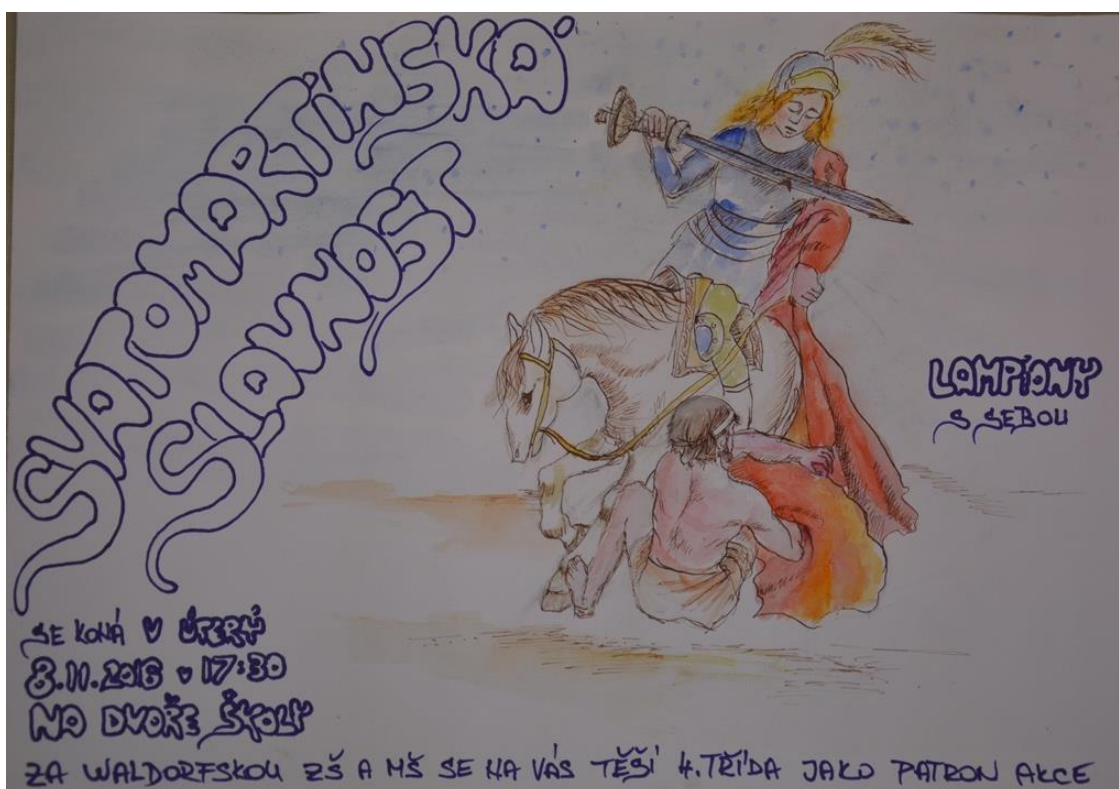 SVATOMARTÍNSKÁ
SLAVNOST
LAMPIONY
S SEBOU
SE KONÁ V ÚTERÝ
8.11.2016 V 17:30
NA DVOŘE ŠKOLY
ZA WALDORFSKOU ZŠ A MŠ SE NA VÁS TĚŠÍ 4. TŘÍDA JAKO PATRON AKCE